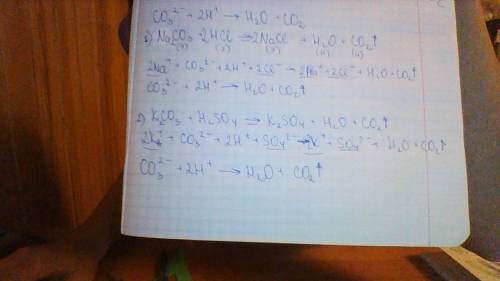 CO₃²⁻ + 2H⁺ → H₂O + CO₂
Na₂CO₃ + 2HCl ⇄ 2NaCl + H₂O + CO₂↑
(р) (р) (р) (н) (н)
2Na⁺ + CO₃²⁻ + 2H⁺ + 2Cl⁻ → 2Na⁺ + 2Cl⁻ + H₂O + CO₂↑
CO₃²⁻ + 2H⁺ → H₂O + CO₂↑
2) K₂CO₃ + H₂SO₄ ⇄ K₂SO₄ + H₂O + CO₂↑
2K⁺ + CO₃²⁻ + 2H⁺ + SO₄²⁻ → K⁺ + SO₄²⁻ + H₂O + CO₂↑
CO₃²⁻ + 2H⁺ → H₂O + CO₂↑